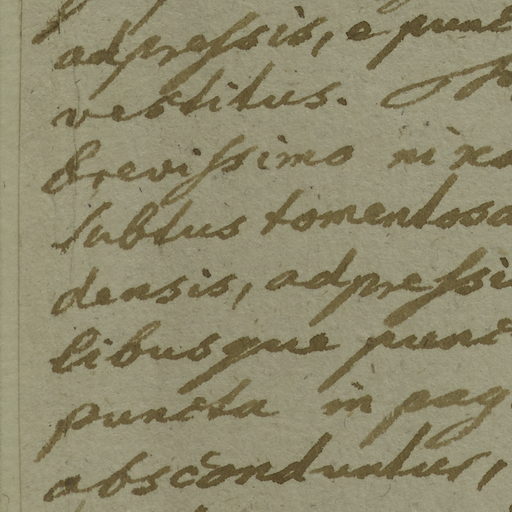 adpressis, e punc
vestitus.
brevissimo nixa
subtus tomentosa
densis, adpressi
libusque punc
puncta in pag
absconduntur,